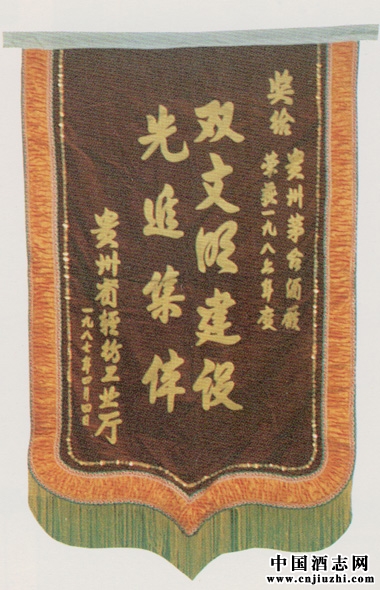 奖给
贵州茅台酒厂
荣获一九八六年度
双文明建设
先进集体
贵州省轻纺工业厅
一九八七年四月四日
中国酒志网
www.cnjiuzhi.com